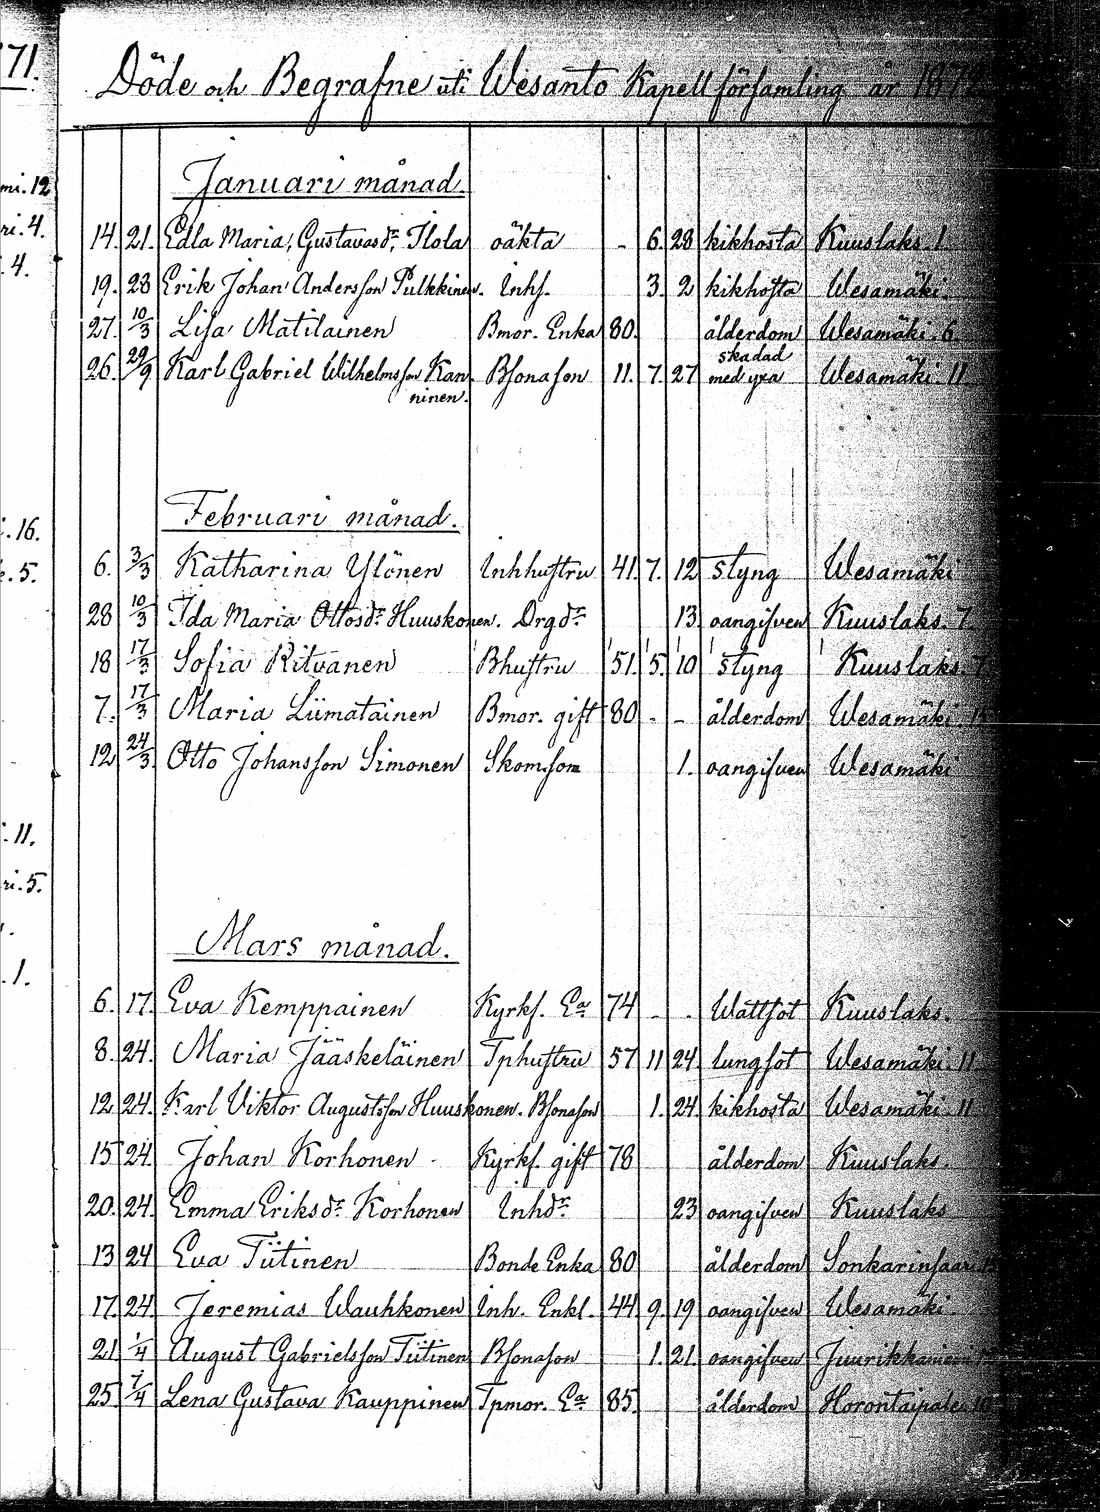 71.
Döde och Begrafne uti Wesanto Kapellförsamling år 187
mi. 12
ri. 4.
. 4.
Januari månad.
14. 21. Edla Maria, Gustavasdr Ilola oäkta - 6. 28 kikhosta Kuuslaks. 1
19. 28 Erik Johan Andersson Pulkkinen. Inhs. 3. 2 kikhosta Wesamäki.
27. 10/3 Lisa Matilainen Bmor. Enka 80. ålderdom Wesamäki. 6.
26. 29/9 Karl Gabriel Wilhelmsson Kan- Bsonason 11. 7. 27 skadad med yxa Wesamäki. 11.
ninen.
. 16.
. 5.
Februari månad.
6. 3/3 Katharina Ylönen Inhhustru 41. 7. 12 styng Wesamäki
28 10/3 Ida Maria Ottosdr Huuskonen. Drgdr 13. oangifven Kuuslaks. 7.
18 17/3 Sofia Ritvanen Bhustru 51. 5. 10 styng Kuuslaks. 7
7. 17/3 Maria Liimatainen Bmor. gift 80 - - ålderdom Wesamäki. 15
12 24/3 Otto Johansson Simonen Skomsson 1. oangifven Wesamäki
. 11.
ri. 5.
. 1.
Mars månad.
6. 17. Eva Kemppainen Kyrkf. Ea 74 - - Wattsot Kuuslaks.
8. 24. Maria Jääskeläinen Tphustru 57 11 24. lungsot Wesamäki. 11
12 24. Karl Viktor Augustsson Huuskonen. Bsonason 1. 24. kikhosta Wesamäki. 11
15 24. Johan Korhonen Kyrkf. gift 78 ålderdom Kuuslaks.
20. 24. Emma Eriksdr Korhonen Inhdr 23 oangifven Kuuslaks
13 24 Eva Tiitinen Bonde Enka 80 ålderdom Sonkarinsaari
17. 24. Jeremias Wauhkonen Inh. Enkl. 44. 9. 19 oangifven Wesamäki.
21 1/4 August Gabrielsson Tiitinen Bsonason 1. 21. oangifven Juurikkaniemi
25 7/4 Lena Gustava Kauppinen Tpmor. Ea 85. ålderdom Horontaipale. 10